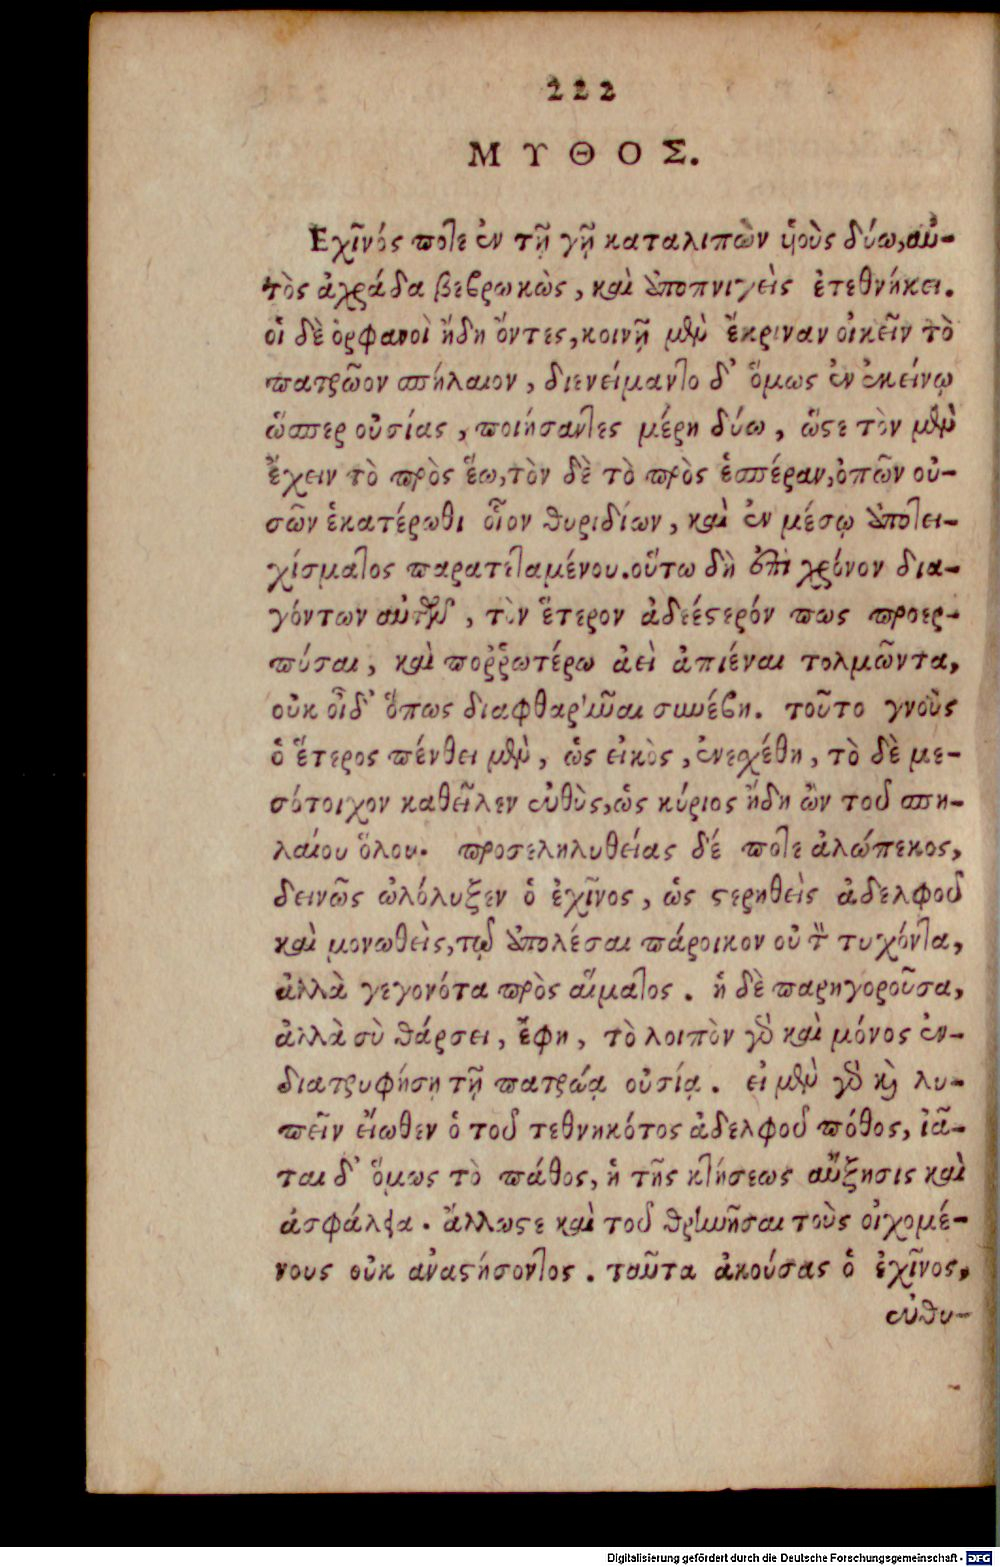 222
ΜΥΘΟΣ.
Εχῖνός ποτε ἐν τῇ γῇ καταλιπὼν ὑοὺς δύω, αὐ-
τὸς ἀχράδα βεβρωκὼς, καὶ ἀποπνιγεὶς ἐτεθνήκει.
οἱ δὲ ὀρφανοὶ ἤδη ὄντες, κοινῇ μὲν ἔκριναν οἰκεῖν τὸ
πατρῶον σπήλαιον, διενείμαντο δ' ὅμως ἐν ἐκείνῳ
ὥσπερ οὐσίας, ποιήσαντες μέρη δύω, ὥστε τὸν μὲν
ἔχειν τὸ πρὸς ἕω, τὸν δὲ τὸ πρὸς ἑσπέραν, ὀπῶν οὐ-
σῶν ἑκατέρωθι οἷον θυριδίων, καὶ ἐν μέσῳ ἀποτει-
χίσματος παρατεταμένου. οὕτω δὴ ἐπὶ χρόνον δια-
γόντων αὐτῶν, τὸν ἕτερον ἀδεέστερόν πως προερ-
πύσαι, καὶ ποῤῥωτέρω ἀεὶ ἀπιέναι τολμῶντα,
οὐκ οἶδ' ὅπως διαφθαρῆναι συνέβη. τοῦτο γνοὺς
ὁ ἕτερος πένθει μὲν, ὡς εἰκὸς, ἐνεχέθη, τὸ δὲ με-
σότοιχον καθεῖλεν εὐθὺς, ὡς κύριος ἤδη ὢν τοῦ σπη-
λαίου ὅλου. προσεληλυθείας δέ ποτε ἀλώπεκος,
δεινῶς ὠλόλυξεν ὁ ἐχῖνος, ὡς στερηθεὶς ἀδελφοῦ
καὶ μονωθεὶς, τῷ ἀπολέσαι πάροικον οὐ τὸν τυχόντα,
ἀλλὰ γεγονότα πρὸς αἵματος. ἡ δὲ παρηγοροῦσα,
ἀλλὰ σὺ θάρσει, ἔφη, τὸ λοιπὸν γὰρ καὶ μόνος ἐν-
διατρυφήσῃ τῇ πατρῴᾳ οὐσίᾳ. εἰ μὲν γὰρ καὶ λυ-
πεῖν εἴωθεν ὁ τοῦ τεθνηκότος ἀδελφοῦ πόθος, ἰᾶ-
ται δ' ὅμως τὸ πάθος, ἡ τῆς κτήσεως αὔξησις καὶ
ἀσφάλεια. ἄλλωστε καὶ τοῦ θρηνῆσαι τοὺς οἰχομέ-
νους οὐκ ἀναστήσοντος. ταῦτα ἀκούσας ὁ ἐχῖνος,
εὐθυ-
Digitalisierung gefördert durch die Deutsche Forschungsgemeinschaft - DFG